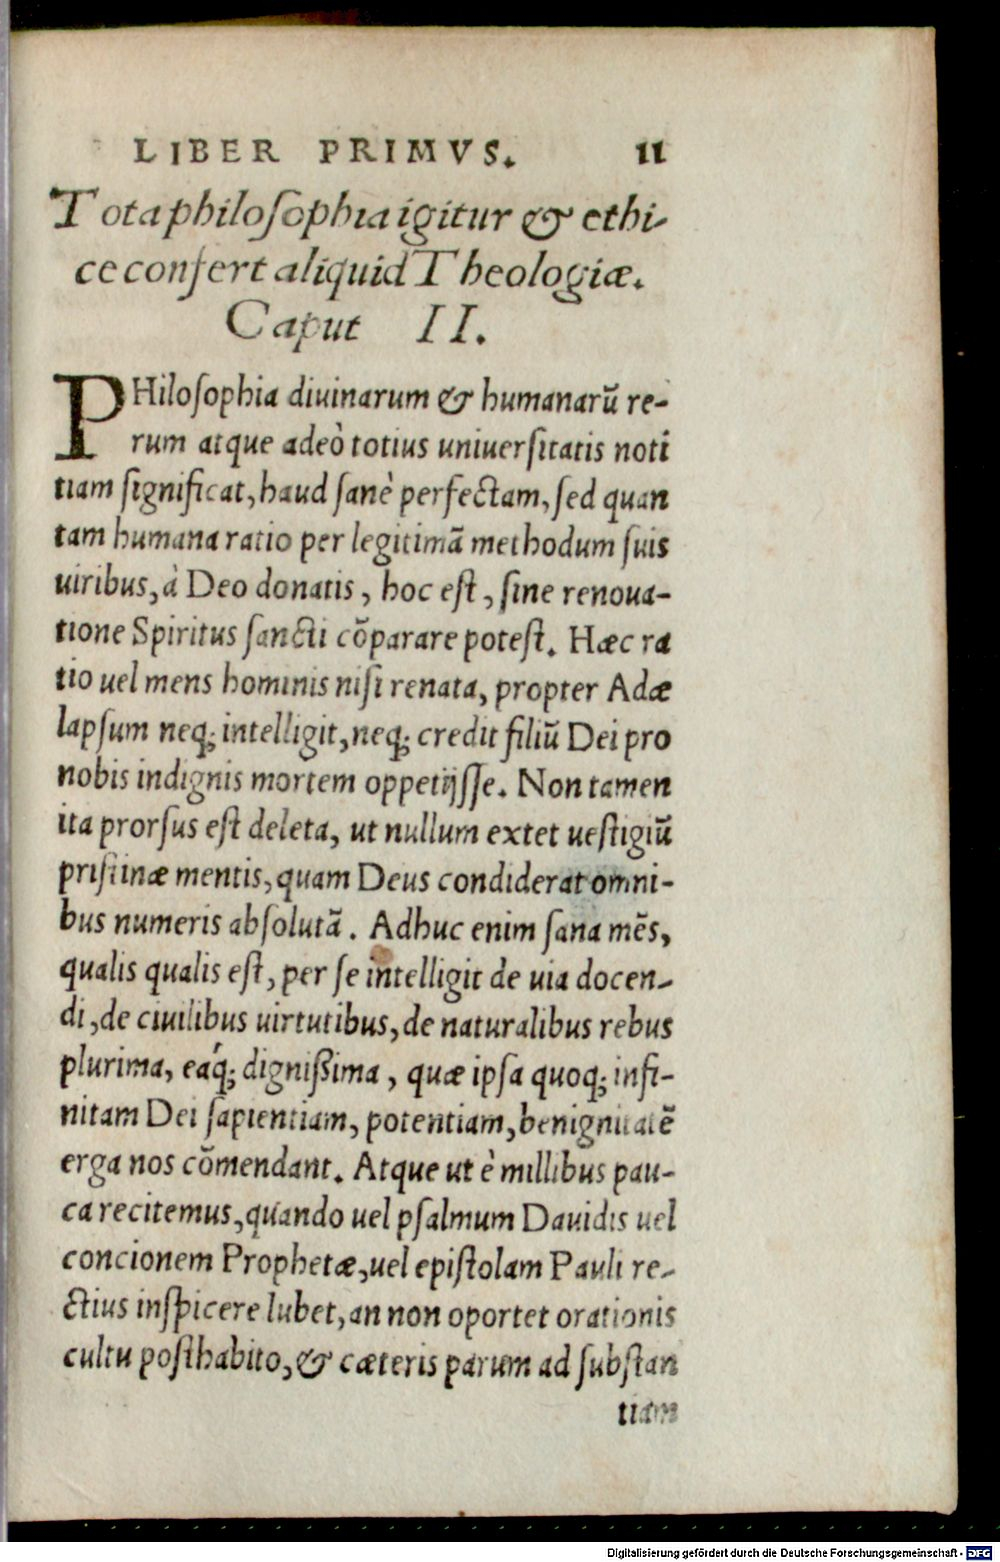 LIBER PRIMVS. 11
Tota philosophia igitur & ethi-
ce confert aliquid Theologiæ.
Caput II.
PHilosophia diuinarum & humanarũ re-
rum atque adeò totius uniuersitatis noti
tiam significat, haud sanè perfectam, sed quan
tam humana ratio per legitimã methodum suis
uiribus, à Deo donatis, hoc est, sine renoua-
tione Spiritus sancti cõparare potest. Hæc ra
tio uel mens hominis nisi renata, propter Adæ
lapsum neq; intelligit, neq; credit filiũ Dei pro
nobis indignis mortem oppetijsse. Non tamen
ita prorsus est deleta, ut nullum extet uestigiũ
pristinæ mentis, quam Deus condiderat omni-
bus numeris absolutã. Adhuc enim sana mẽs,
qualis qualis est, per se intelligit de uia docen-
di, de ciuilibus uirtutibus, de naturalibus rebus
plurima, eáq; dignißima, quæ ipsa quoq; infi-
nitam Dei sapientiam, potentiam, benignitatẽ
erga nos cõmendant. Atque ut è millibus pau-
ca recitemus, quando uel psalmum Dauidis uel
concionem Prophetæ, uel epistolam Pauli re-
ctius inspicere lubet, an non oportet orationis
cultu posthabito, & cæteris parum ad substan
tiam
Digitalisierung gefördert durch die Deutsche Forschungsgemeinschaft - DFG